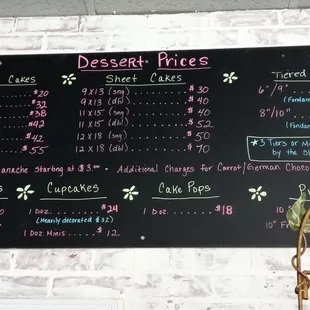 Dessert Prices
Cakes
$20
$32
$38
$42
$42
$55
Sheet Cakes
9 x 13 (sng) $30
9 x 13 (dbl) $40
11 x 15 (sng) $40
11 x 15 (dbl) $52
12 x 18 (sng) $50
12 x 18 (dbl) $70
Tiered
6"/9"
(Fondan
8"/10"
(Fondan
*3 Tiers or M
by the Sl
starting at $3.00 • Additional Charges for Carrot/German Choco
Cupcakes
1 Doz. $24
(Heavily decorated $32)
1 Doz Minis $12
Cake Pops
1 Doz. $18
10
10" F